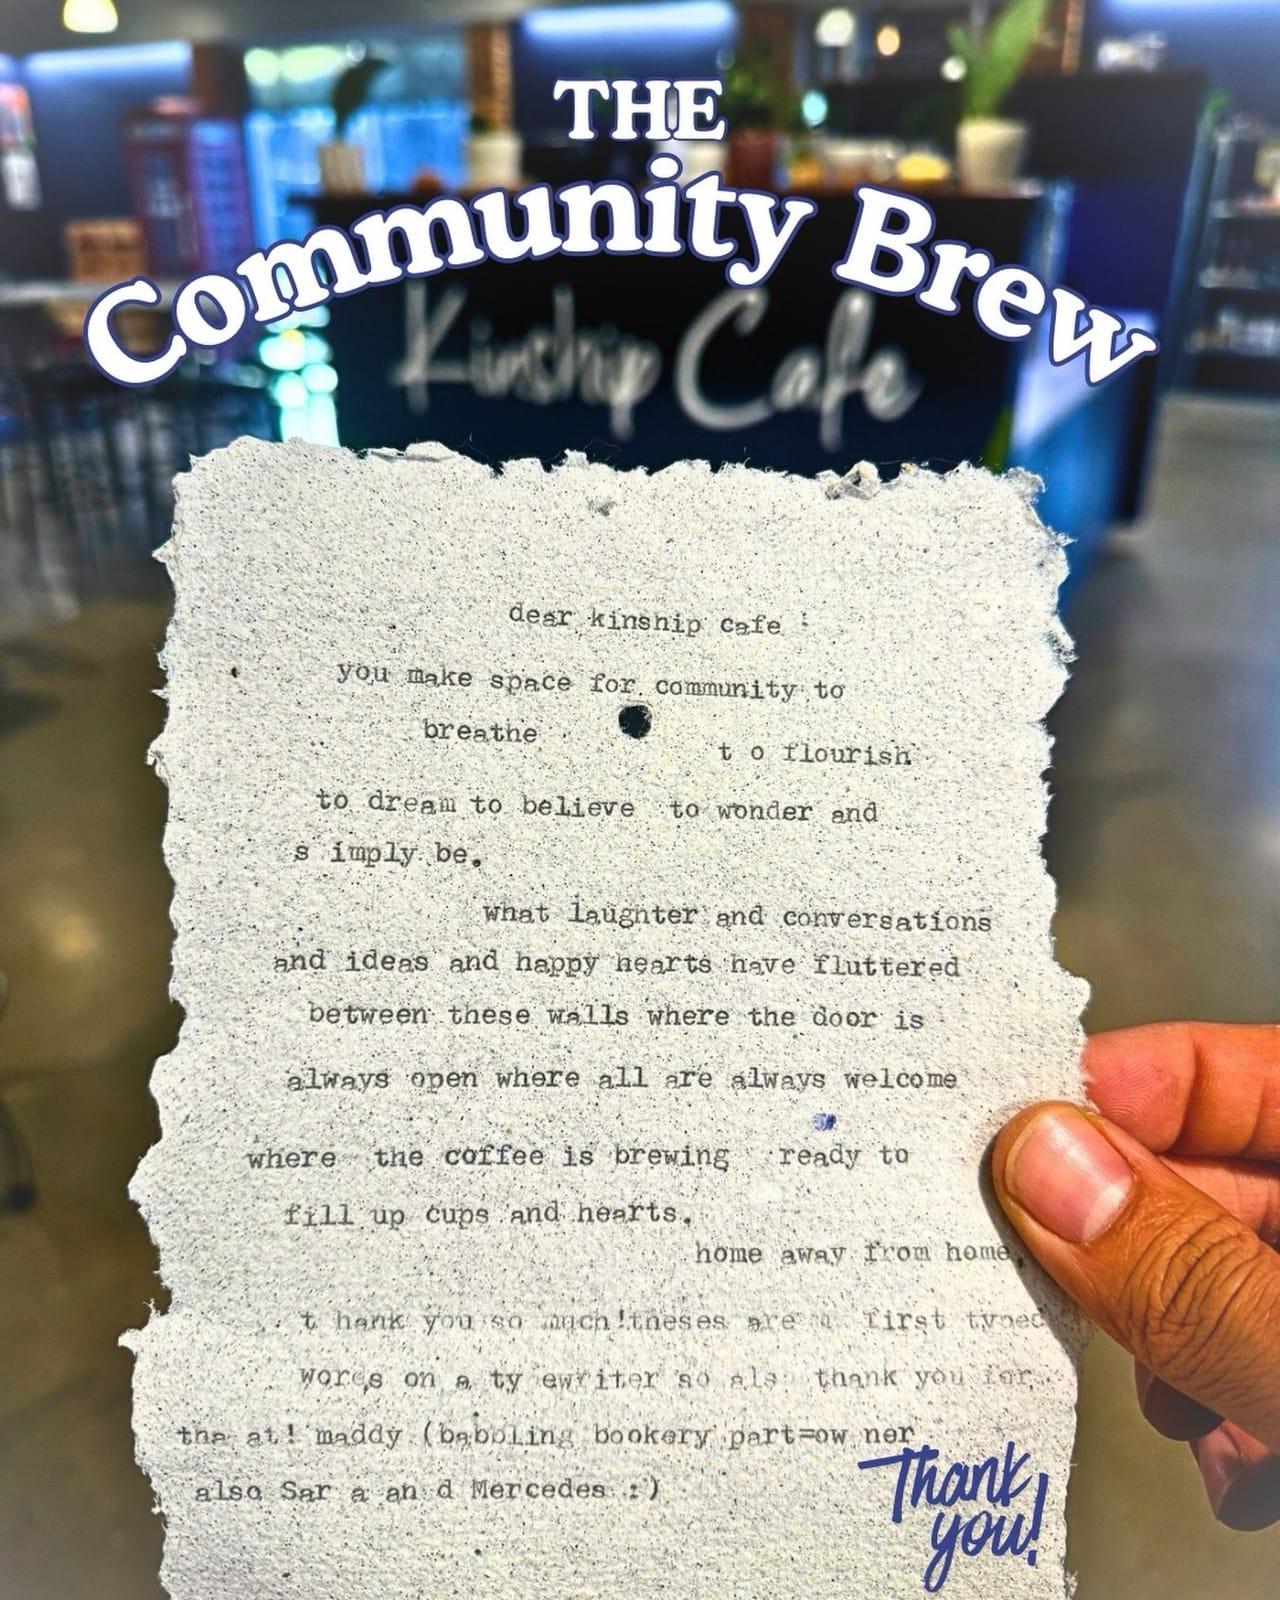 THE
Community Brew
Kinship Cafe
dear kinship cafe :
you make space for community to
breathe
t o flourish
to dream to believe to wonder and
s imply be.
what laughter and conversations
and ideas and happy hearts have fluttered
between these walls where the door is
always open where all are always welcome
where the coffee is brewing ready to
fill up cups and hearts.
home away from home.
t hank you so much!theses are m first typed
words on a ty ewriter so als thank you for
tha at! maddy (babbling bookery part=ow ner
also Sar a an d Mercedes :)
Thank
you!